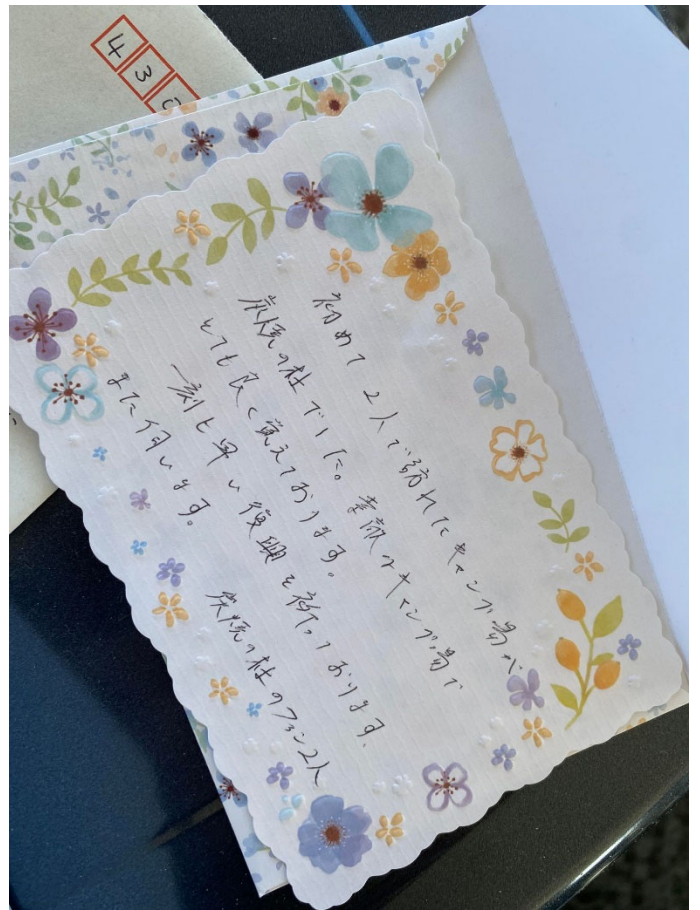 430
初めて2人で訪れたキャンプ場が
炭焼の杜でした。素敵なキャンプ場で
とても良く覚えております。
一刻も早い復興を祈っております。
また伺います。
炭焼の杜のファン2人